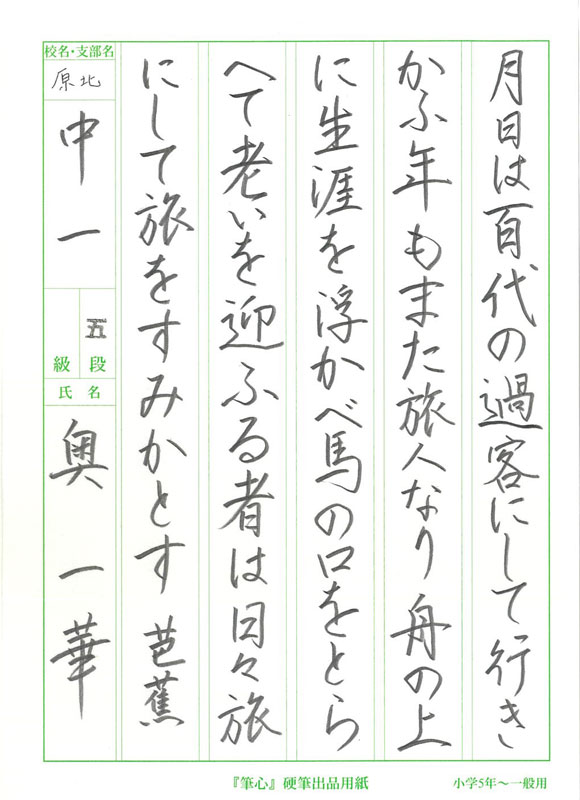 月日は百代の過客にして行き
かふ年もまた旅人なり舟の上
に生涯を浮かべ馬の口をとら
へて老いを迎ふる者は日々旅
にして旅をすみかとす 芭蕉
校名・支部名
原北
中一
五
段
級
氏名
奥一華
『筆心』硬筆出品用紙
小学5年～一般用